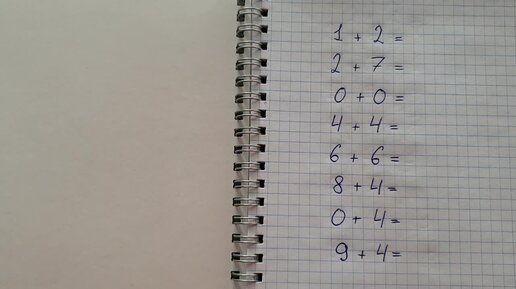 1 + 2 =
2 + 7 =
0 + 0 =
4 + 4 =
6 + 6 =
8 + 4 =
0 + 4 =
9 + 4 =